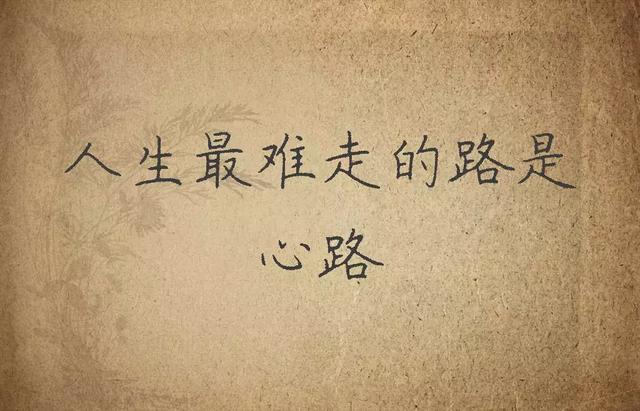 人生最难走的路是
心路